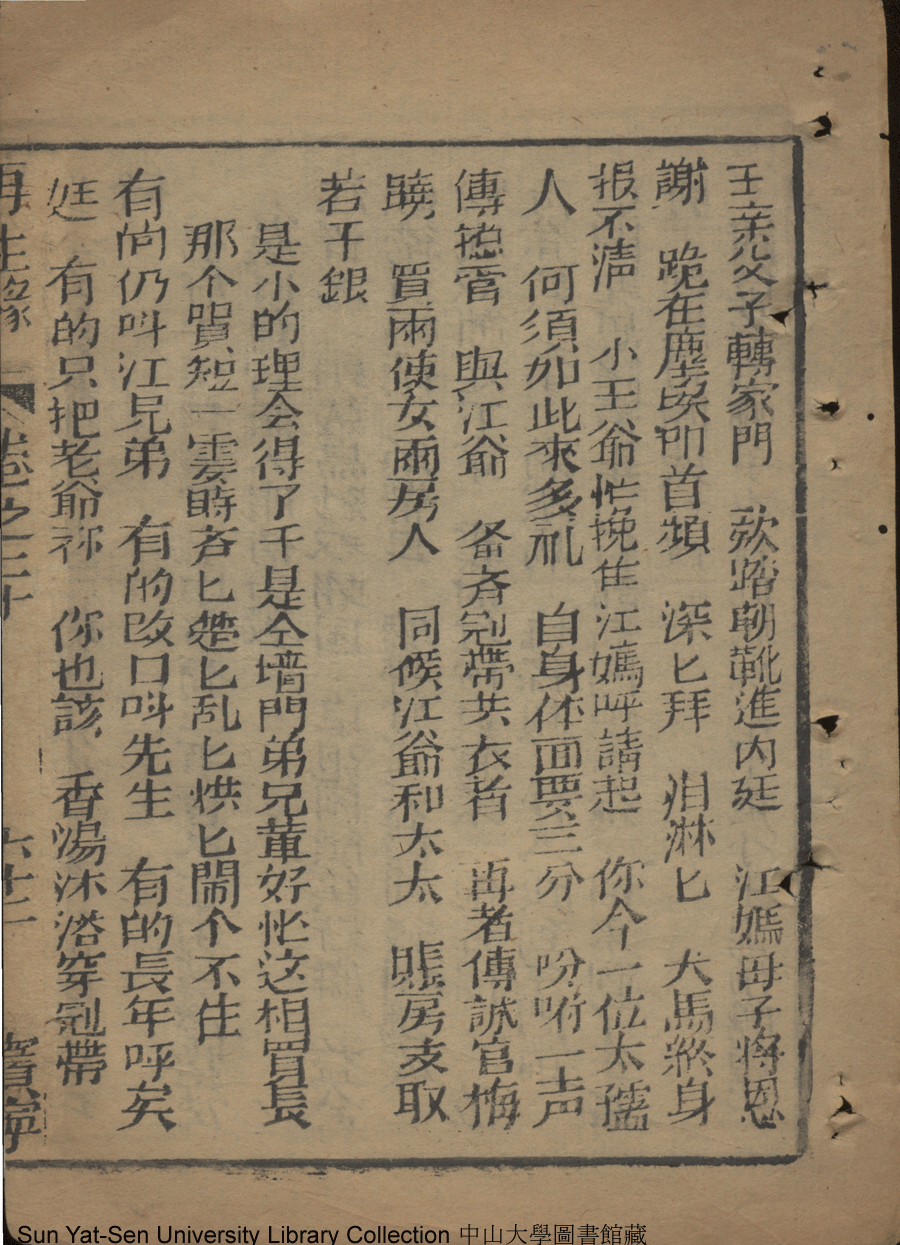 王亲父子轉家門　欤踏朝靴進内廷　江媽母子将恩
謝　跪在塵埃叩首頻　深匕拜　泪淋匕　犬馬終身
报不清　小王爺忙挽住江媽呼請起　你今一位太孺
人　何須如此來多礼　自身体面要三分　吩咐一声
傳揔管　與江爺　备齐冠帶共衣者　再者傳諕官梅
曉　買兩使女兩房人　同候江爺和太太　賬房支取
若干銀
是小的理会得了于是仝墻門弟兄董好忙这相買長
那个買短一霎時吝匕楚匕乱匕烘匕鬧个不住
有尚仍呌江兄弟　有的改口呌先生　有的長年呼矣
廷　有的只把老爺称　你也該　香湯沐浴穿冠帶
再生緣　卷之二十　六十二　寳寧
Sun Yat-Sen University Library Collection 中山大學圖書館藏